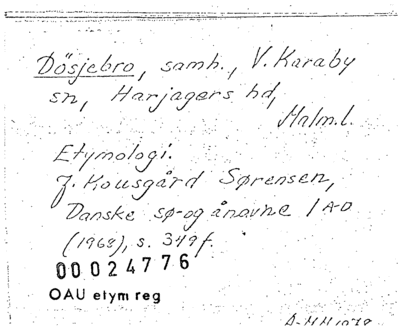 Dösjebro, samh., V. Karaby
sn, Harjagers hd,
Malm.l.
Etymologi.
J. Kousgård Sørensen,
Danske sø- og ånavne 1 A-D
(1968), s. 349 f.
00024776
OAU etym reg